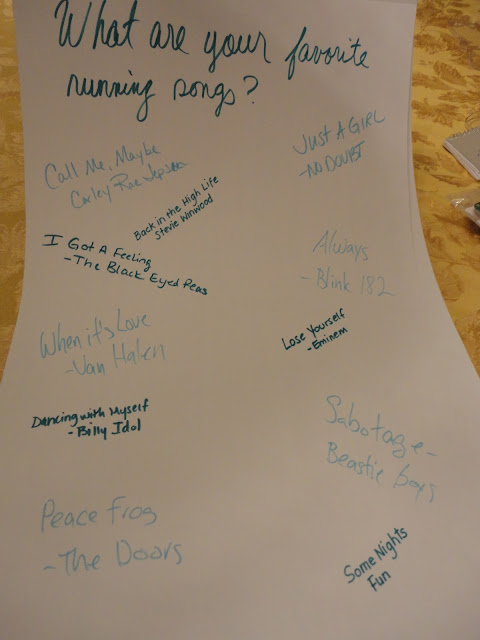 What are your favorite
running songs?
Call Me, Maybe
Carley Rae Jepsen
JUST A GIRL
-NO DOUBT
Back in the High Life
Stevie Winwood
I Got A Feeling
-The Black Eyed Peas
Always
- Blink 182
When it's Love
-Van Halen
Lose Yourself
-Eminem
Dancing with Myself
-Billy Idol
Sabotage-
Beastie boys
Peace Frog
-The Doors
Some Nights
Fun